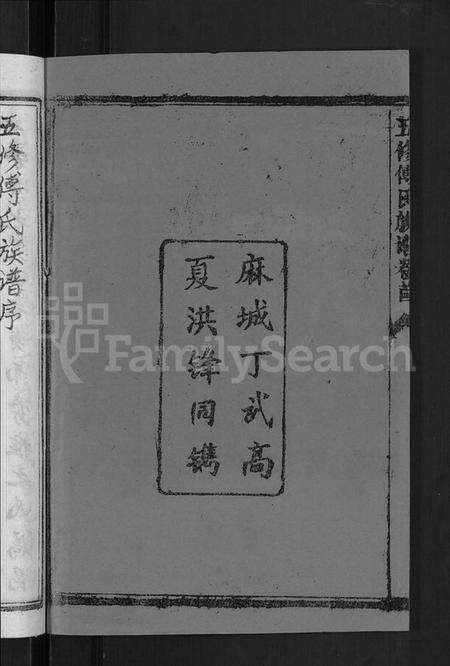 五修傅氏族譜卷首
麻城丁武高
夏洪鋒同鐫
五修傅氏族譜序
FamilySearch